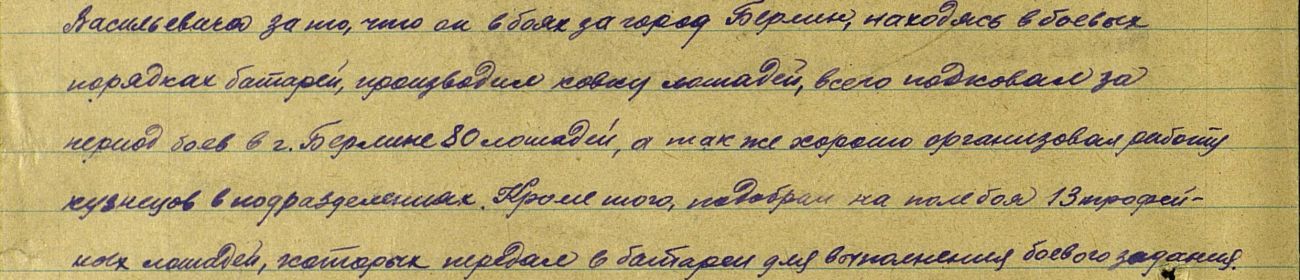 Васильевича за то, что он в боях за город Берлин, находясь в боевых
порядках батарей, производил ковку лошадей, всего подковал за
период боев в г. Берлине 80 лошадей, а так же хорошо организовал работу
кузнецов в подразделениях. Кроме того, подобрал на поле боя 13 трофей-
ных лошадей, которых передал в батареи для выполнения боевого задания